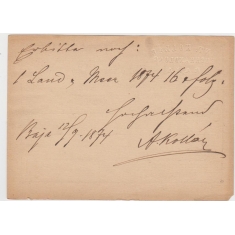 Erbitte noch:
1 Land u. Meer 1874 16 & folg.
Hochachtend
Baja 12/9. 1874
AKollár